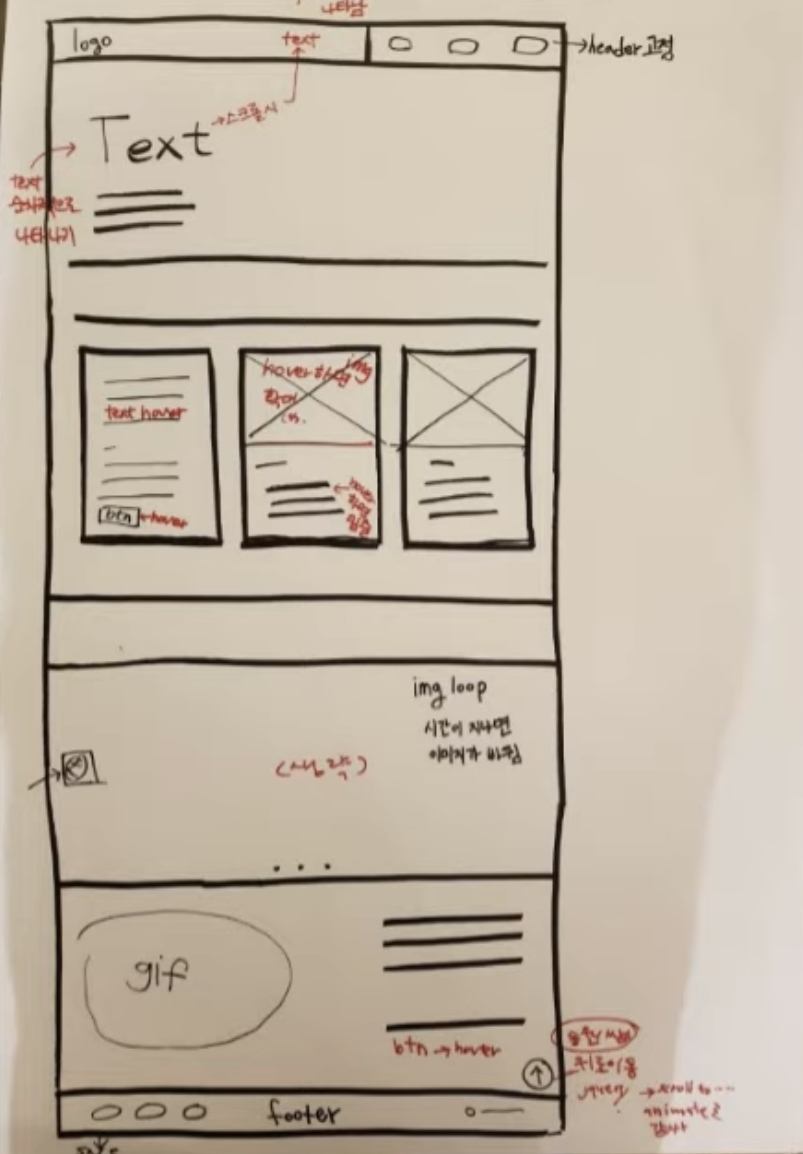 나타남
logo
text
header 고정
Text
→스크롤시
text
순차적으로
나타나기
text hover
btn
hover
hover하면
img
확대
hover
img loop
시간이 지나면
이미지가 바뀜
(생략)
...
gif
btn → hover
위로이동
→ scroll to ...
animate로
footer